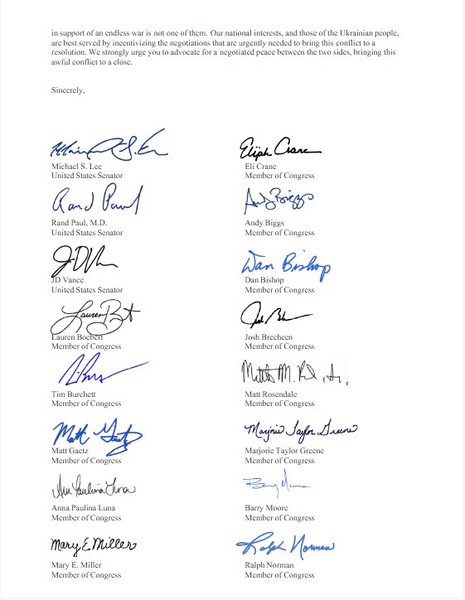 in support of an endless war is not one of them. Our national interests, and those of the Ukrainian people,
are best served by incentivizing the negotiations that are urgently needed to bring this conflict to a
resolution. We strongly urge you to advocate for a negotiated peace between the two sides, bringing this
awful conflict to a close.
Sincerely,
Michael S. Lee
United States Senator
Eliph Crane
Eli Crane
Member of Congress
Rand Paul
Rand Paul, M.D.
United States Senator
Andy Biggs
Andy Biggs
Member of Congress
JD Vance
United States Senator
Dan Bishop
Dan Bishop
Member of Congress
Lauren Boebert
Member of Congress
Josh Brecheen
Member of Congress
Tim Burchett
Member of Congress
Matt Rosendale
Member of Congress
Matt Gaetz
Matt Gaetz
Member of Congress
Marjorie Taylor Greene
Marjorie Taylor Greene
Member of Congress
Anna Paulina Luna
Anna Paulina Luna
Member of Congress
Barry Moore
Barry Moore
Member of Congress
Mary E. Miller
Mary E. Miller
Member of Congress
Ralph Norman
Ralph Norman
Member of Congress